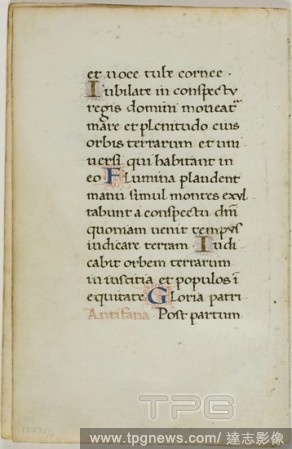 et uoce tube cornee.
Iubilate in conspectu
regis domini moueat̄
mare et plenitudo eius
orbis terrarum et uni
uersi qui habitant in
eo Flumina plaudent
manu simul montes exul
tabunt a conspectu dn̄i
quoniam uenit tempus
iudicare terram. Iudi
cabit orbem terrarum
in iusticia et populos ī
equitate Gloria patri
Antifana Post partum
TPG
www.tpgnews.com / 達志影像